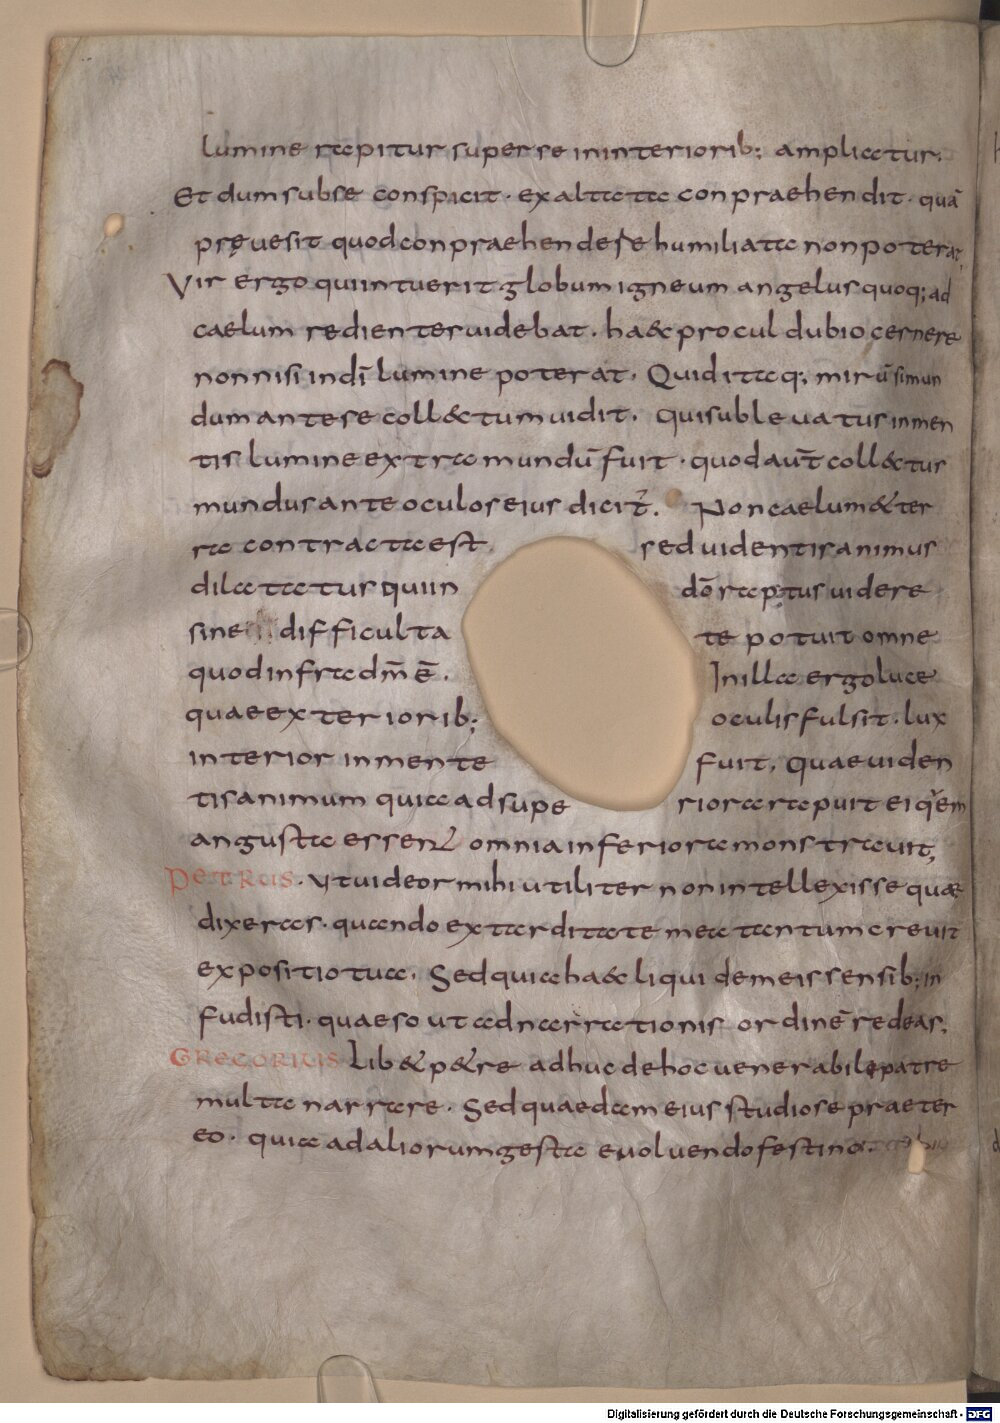 lumine rapitur super se in interiorib; ampliatur.
Et dum sub se conspicit · exaltata conpraehendit · quā
pręuesit quod conpraehendere humiliata non poterat,
Vir ergo qui intuerit globum igneum angelus quoq; ad
caelum redientes uidebat · haec procul dubio cernere
non nisi in dī lumine poterat. Quid itaq; mirū si mun
dum ante se collectum uidit. qui subleuatus in men
tis lumine extra mundū fuit · quod aūt collectus
mundus ante oculos eius dicit̄. Non caelum & ter
ra contracta est sed uidentis animus
dilatatus qui in dō raptus uidere
sine difficultate potuit omne
quod infra dm̄ ē. In illa ergo luce
quae exteriorib; oculis fulsit · lux
interior in mente fuit. quae uiden
tis animum quia ad superiora rapuit ei q̄em
angusta essent omnia inferiora monstrauit,
PETRUS · Vt uideor mihi utiliter non intellexisse quae
dixeras · quando ex tarditate mea tantum creuit
expositio tua. Sed quia haec liqui de meis sensib; in
fudisti · quaeso ut ad narrationis ordinē redeas,
GREGORIUS Lib& p&re adhuc de hoc uenerabile patre
multa narrare · Sed quaedam eius studiose praeter
eo · quia ad aliorum gesta euoluendo festino.
Digitalisierung gefördert durch die Deutsche Forschungsgemeinschaft - DFG